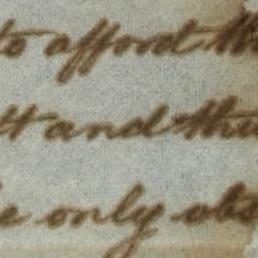 to afford th
and thu
only obs